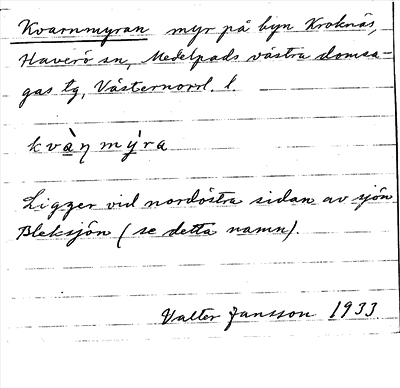 Kvarnmyran myr på byn Kroknäs,
Haverö sn, Medelpads västra domsa-
gas tg, Västernorrl. l.
kvàɳmýra
Ligger vid nordöstra sidan av sjön
Bleksjön (se detta namn).
Valter Jansson 1933